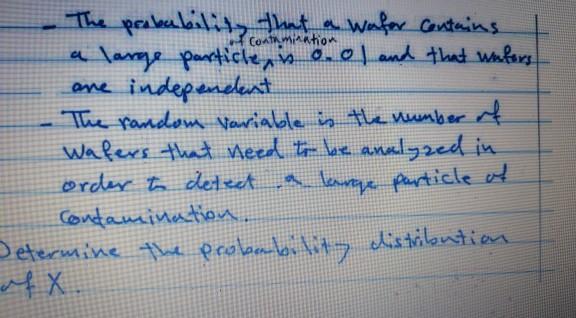 - The probability that a wafer contains
of contamination
a large particle ^ is 0.01 and that wafers
are independent
- The random variable is the number of
wafers that need to be analyzed in
order to detect a large particle of
contamination.
Determine the probability distribution
of X.